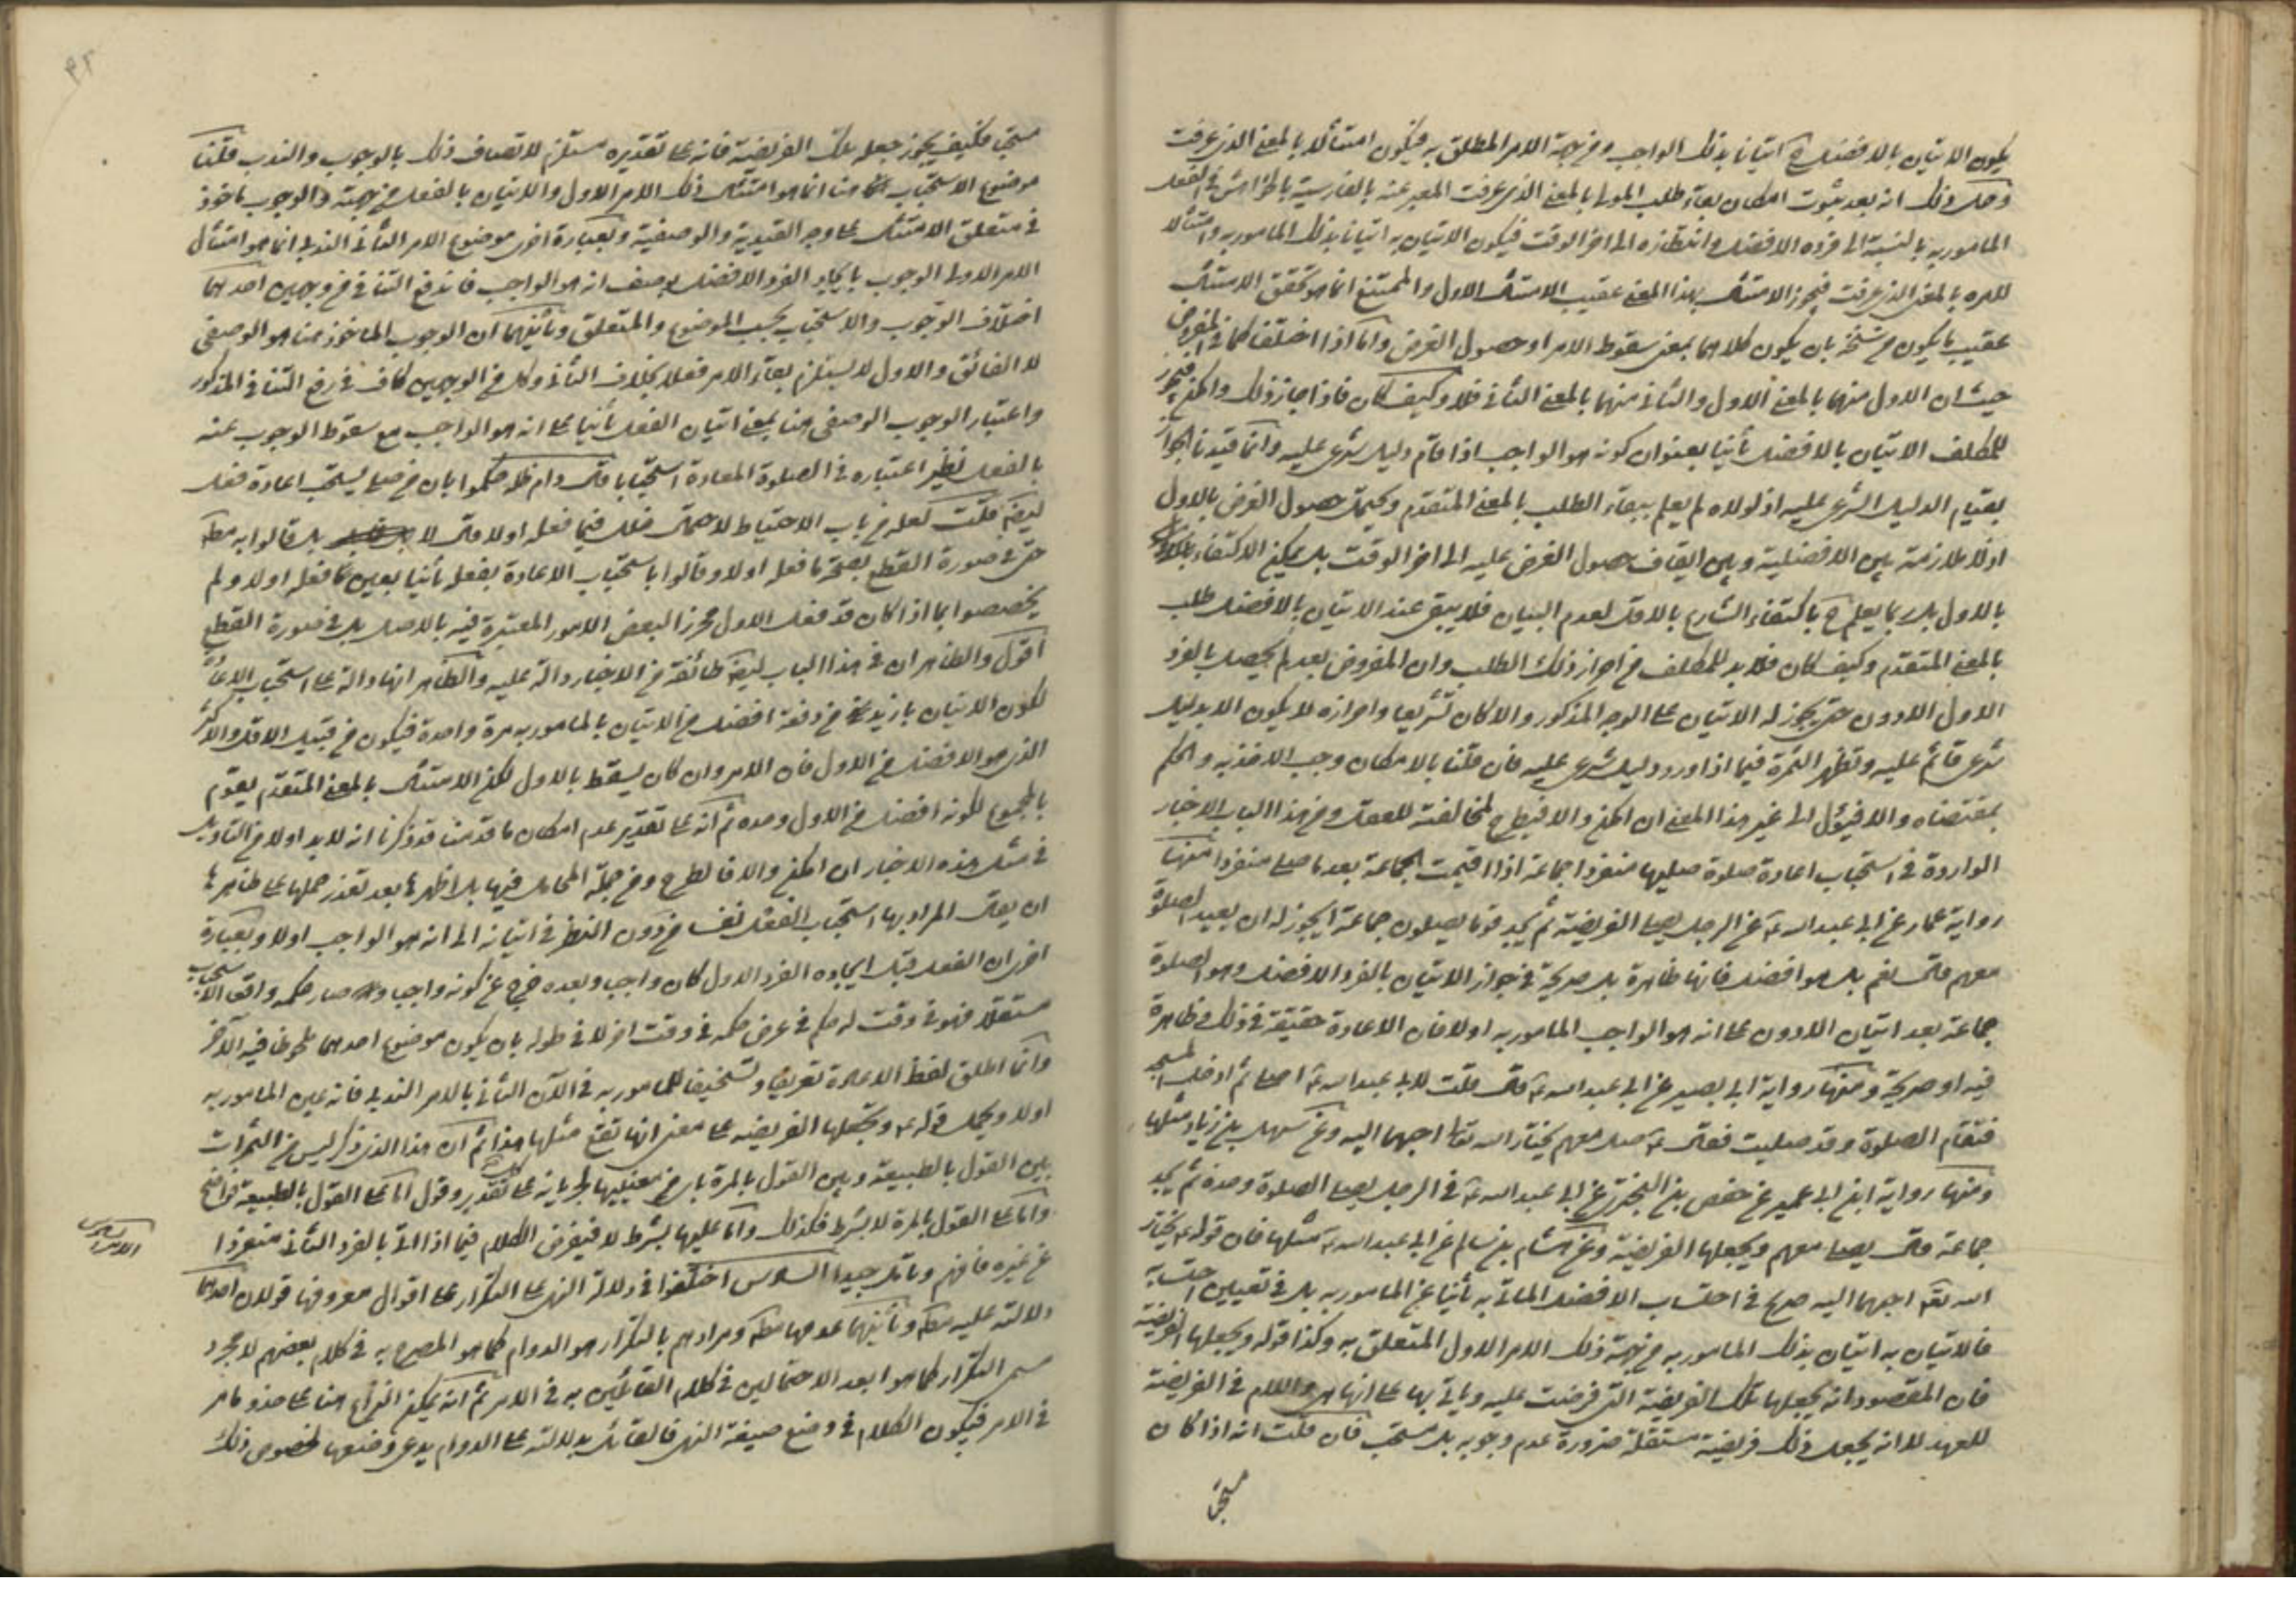 يكون الاتيان بالافضل ح اتيانا بذلك الواجب و من جهة الامر المطلق به فيكون امتثالا بالمعنى الذي عرفت
و حاصل ذلك انه بعد ثبوت امكان بقاء طلب المولى بالمعنى الذي عرفت المعبر عنه بالفارسية بالخواهش في الفعل
المامور به بالنسبة الى فرده الافضل و انتظاره الى اخر الوقت فيكون الاتيان به اتيانا بذلك المامور به و امتثالا
للامر بالمعنى الذي عرفت فيجوز الامتثال بهذا المعنى عقيب الامتثال الاول و الممتنع انما هو تحقق الامتثال
عقيب ما يكون من سنخه بان يكون كلاهما بمعنى سقوط الامر او حصول الغرض و اما اذا اختلفا كما في المفروض
حيث ان الاول منهما بالمعنى الاول و الثاني منهما بالمعنى الثاني فلا و كيف كان فاذا جاز ذلك و امكن فيجوز
للمكلف الاتيان بالافضل ثانيا بعنوان كونه هو الواجب اذا قام دليل شرعي عليه و انما قيدنا الجواز
بقيام الدليل الشرعي عليه اذ لولاه لم يعلم ببقاء الطلب بالمعنى المتقدم و يحتمل حصول الغرض بالاول
اذ لا ملازمة بين الافضلية و بين ايقاف حصول الغرض عليه الى اخر الوقت بل يمكن الاكتفاء
بالاول بل ربما يعلم ح باكتفاء الشارع بالاقل لعدم البيان فلا يبقى عند الاتيان بالافضل طلب
بالمعنى المتقدم و كيف كان فلا بد للمكلف من احراز ذلك الطلب و ان المفروض بعد لم يحصل بالفرد
الاول الادون حتى يجوز له الاتيان على الوجه المذكور و الا كان تشريعا و احرازه لا يكون الا بدليل
شرعي قائم عليه و تظهر الثمرة فيما اذا ورد دليل شرعي عليه فان قلنا بالامكان وجب الاخذ به و الحكم
بمقتضاه و الا فيؤل الى غير هذا المعنى ان امكن و الا فيطرح لمخالفته للعقل و من هذا الباب الاخبار
الواردة في استحباب اعادة صلوة صليها منفردا جماعة اذا اقيمت الجماعة بعد ما صلى منفردا منها
رواية عمار عن ابي عبد الله ع عن الرجل يصلى الفريضة ثم يجد قوما يصلون جماعة ايجوز له ان يعيد الصلوة
معهم قال نعم بل هو افضل فانها ظاهرة بل صريحة في جواز الاتيان بالفرد الافضل و هو الصلوة
جماعة بعد اتيان الادون على انه هو الواجب المامور به اولا فان الاعادة حقيقة في ذلك و ظاهرة
فيه او صريحة و منها رواية ابي بصير عن ابي عبد الله ع قال قلت لابي عبد الله ع اصلى ثم ادخل المسجد
فتقام الصلوة و قد صليت فقال ع صل معهم يختار الله تعالى احبهما اليه و عن سهل بن زياد مثلها
و منها رواية ابن ابي عمير عن حفص بن البختري عن ابي عبد الله ع في الرجل يصلى الصلوة وحده ثم يجد
جماعة قال يصلى معهم و يجعلها الفريضة و عن هشام بن سالم عن ابي عبد الله ع مثلها فان قوله ع يختار
الله تعالى احبهما اليه صريح في احتساب الافضل الماتي به ثانيا عن المامور به بل في تعيين احتسابه
فالاتيان به اتيان بذلك المامور به من جهة ذلك الامر الاول المتعلق به و كذا قوله و يجعلها الفريضة
فان المقصود انه يجعلها تلك الفريضة التي فرضت عليه و ياتي بها على انها هي و اللام في الفريضة
للعهد لا انه يجعل ذلك فريضة مستقلة ضرورة عدم وجوبه بل مستحب فان قلت انه اذا كان
مستحبا
٦٩
مستحبا فكيف يجوز جعله تلك الفريضة فانه على تقديره مستلزم لاتصاف ذلك بالوجوب و الندب قلنا
موضوع الاستحباب هنا انما هو امتثال ذلك الامر الاول و الاتيان بالفعل من جهته و الوجوب ماخوذ
في متعلق الامتثال على وجه القيدية و الوصفية و بعبارة اخرى موضوع الامر الثاني الندبي انما هو امتثال
الامر الاول الوجوبي بايجاد الفرد الافضل بوصف انه هو الواجب فاندفع التنافي من وجهين احدهما
اختلاف الوجوب و الاستحباب بحسب الموضوع و المتعلق و ثانيهما ان الوجوب الماخوذ هنا هو الوصفي
لا الفائق و الاول لا يستلزم بقاء الامر فعلا بخلاف الثاني و كل من الوجهين كاف في رفع التنافي المذكور
و اعتبار الوجوب الوصفي هنا بمعنى اتيان الفعل ثانيا على انه هو الواجب مع سقوط الوجوب عنه
بالفعل نظير اعتباره في الصلوة المعادة استحبابا قال دام ظله حكموا بان من صلى يستحب اعادة فعله
ايضا قلت لعله من باب الاحتياط لاحتمال خلل فيما فعله اولا قال لا بل قالوا به مطلقا
حتى في صورة القطع بصحة ما فعله اولا و قالوا باستحباب الاعادة بفعله ثانيا بعين ما فعله اولا و لم
يخصصوا بما اذا كان قد فعل الاول محرزا لبعض الامور المعتبرة فيه بالاصل بل في صورة القطع
اقول و الظاهر ان في هذا الباب ايضا طائفة من الاخبار دالة عليه و الظاهر انها دالة على استحباب الاعادة
لكون الاتيان بازيد من دفعة افضل من الاتيان بالمامور به مرة واحدة فيكون من قبيل الاقل و الاكثر
الذي هو الافضل من الاول فان الامر و ان كان يسقط بالاول لكن الامتثال بالمعنى المتقدم يقوم
بالمجموع لكونه افضل من الاول وحده ثم انه على تقدير عدم امكان ما قدمنا قد ذكرنا انه لا بد اولا من التاويل
في مثل هذه الاخبار ان امكن و الا فالطرح و من جملة المحامل فيها بل اظهرها بعد تعذر حملها على ظاهرها
ان يقال المراد بها استحباب الفعل نفسه من دون النظر في اتيانه الى انه هو الواجب اولا و بعبارة
اخرى ان الفعل قبل ايجاده الفرد الاول كان واجبا و بعده خرج عن كونه واجبا و صار حكمه واقعا الاستحباب
مستقلا فهو في وقت له حكم في عرض حكمه في وقت اخر لا في طوله بان يكون موضوع احدهما ملحوظا فيه الآخر
و انما اطلق لفظ الاعادة تعريفا و تشخيصا للمامور به في الآن الثاني بالامر الندبي فانه عين المامور به
اولا و يحمل قوله ع و يجعلها الفريضة على معنى انها تقع مثلها هذا ثم ان هذا الذي ذكر ليس من الثمرات
بين القول بالطبيعة و بين القول بالمرة باي من معنييها لجريانه على كل تقدير و قول اما على القول بالطبيعة فواضح
و اما على القول بالمرة لا بشرط فكذلك و اما عليها بشرط لا فيفرض الكلام فيما اذا اتى بالفرد الثاني منفردا
عن غيره فافهم و تامل جيدا السادس اختلفوا في دلالة النهي على التكرار على اقوال معروفها قولان احدهما
دلالته عليه مطلقا و ثانيهما عدمها مطلقا و مرادهم بالتكرار هو الدوام كما هو المصرح به في كلام بعضهم لا مجرد
مسمى التكرار كما هو ابعد الاحتمالين في كلام القائلين به في الامر ثم انه يمكن النزاع هنا على حذو ما مر
في الامر فيكون الكلام في وضع صيغة النهي فالقائل بدلالته على الدوام يدعي وضعها لخصوص ذلك